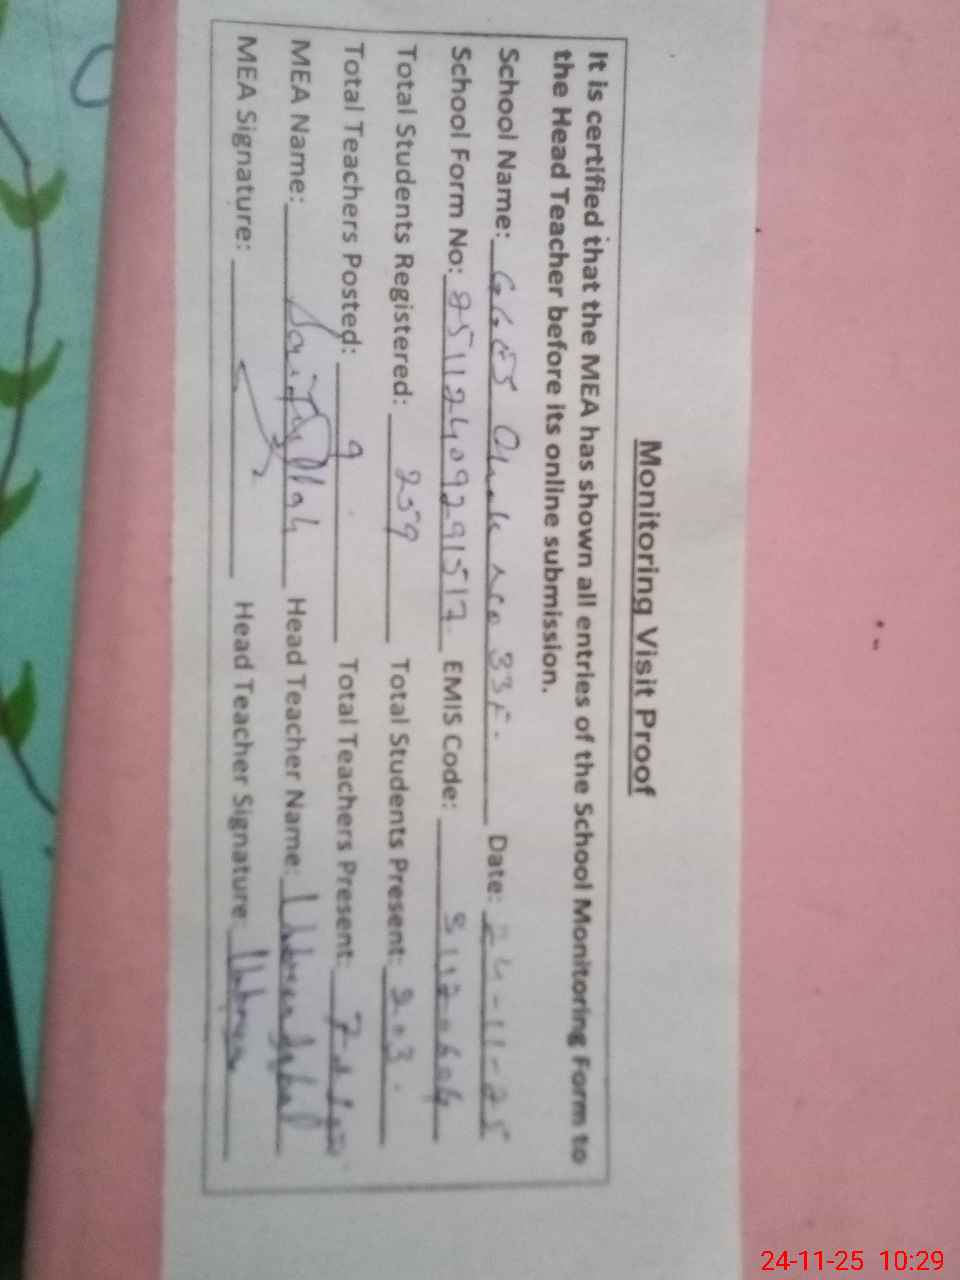 Monitoring Visit Proof
It is certified that the MEA has shown all entries of the School Monitoring Form to
the Head Teacher before its online submission.
School Name: GGES Chak No 33F. Date: 24-11-25
School Form No: EMIS Code:
Total Students Registered: 259 Total Students Present: 203.
Total Teachers Posted: 9 Total Teachers Present: 7
MEA Name: Saifullah Head Teacher Name:
MEA Signature: Head Teacher Signature:
24-11-25 10:29